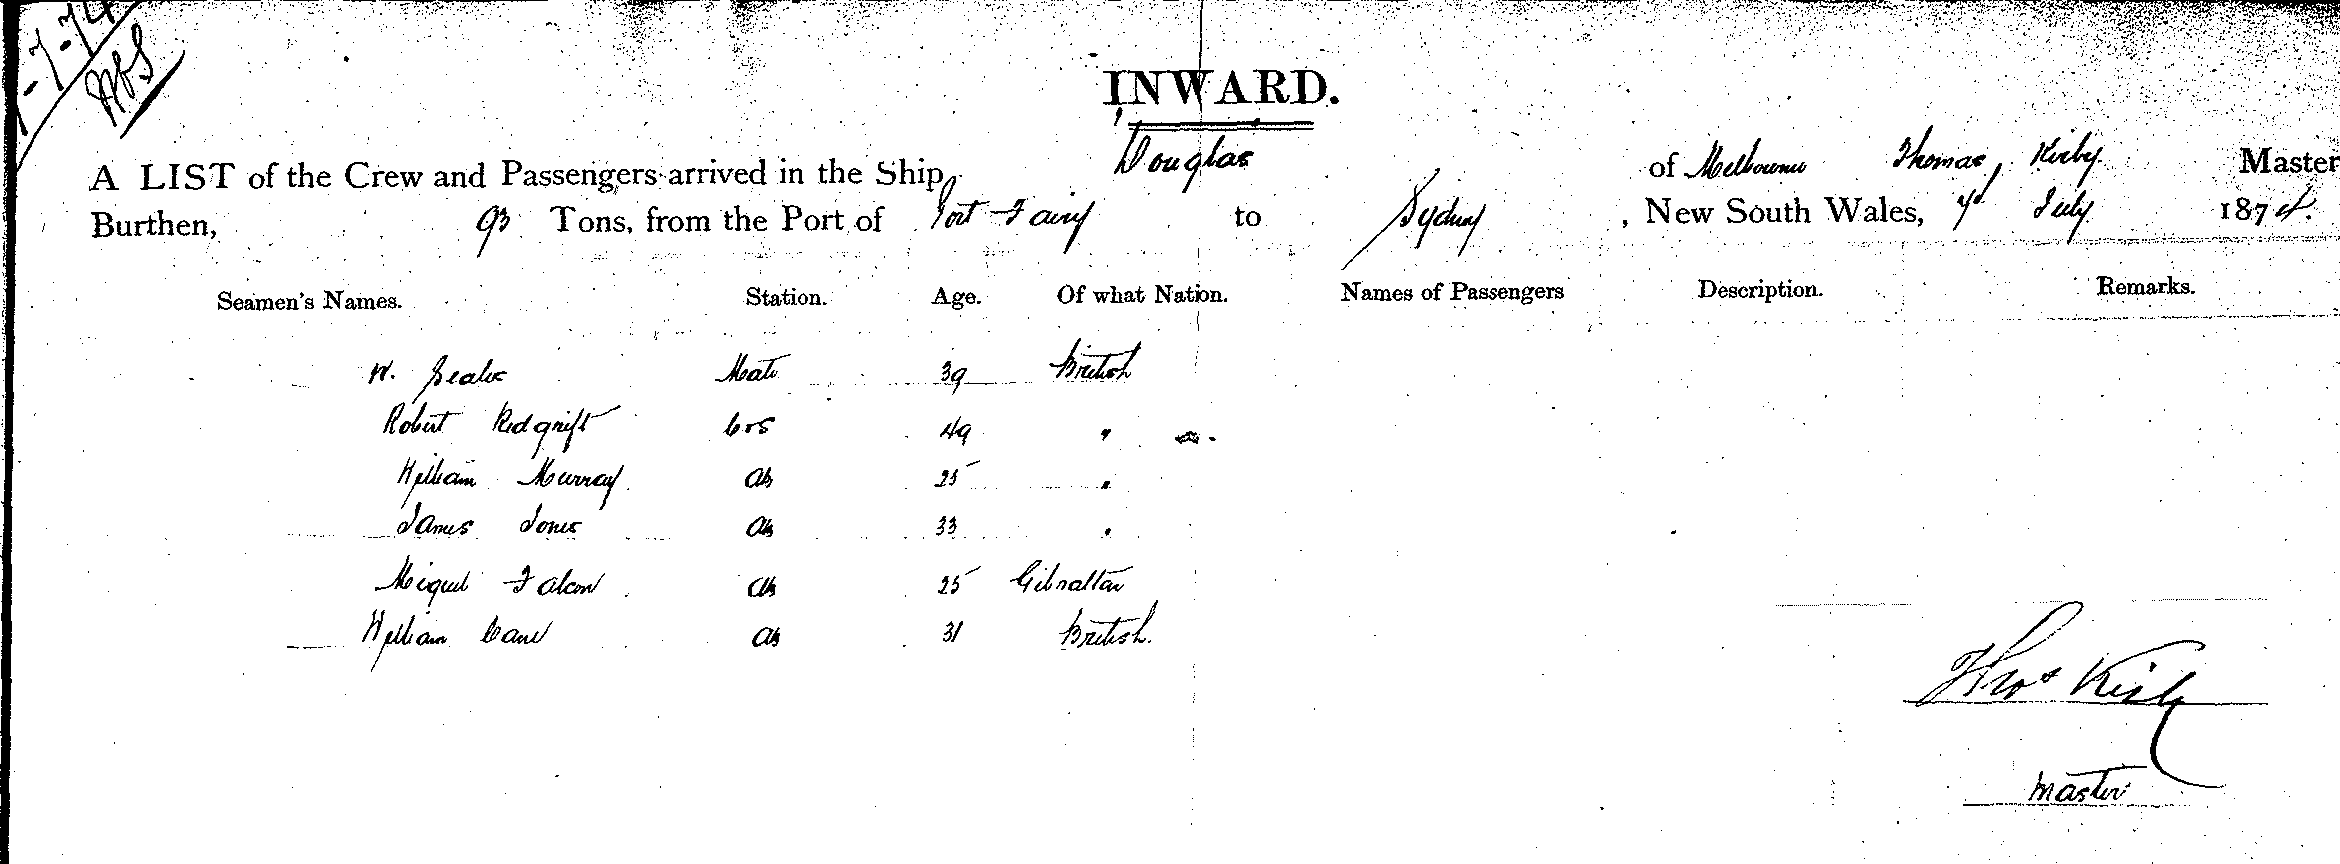 -7-74
INWARD.
A LIST of the Crew and Passengers arrived in the Ship Douglas of Melbourne Thomas Kirby Master
Burthen, 93 Tons, from the Port of Port Fairy to Sydney, New South Wales, July 1874.
Seamen's Names. Station. Age. Of what Nation. Names of Passengers Description. Remarks.
W. Mate 39 British
Robert Redgrift 49 "
William Murray ab 25 "
James Jones ab 33 "
Miguel Falcon ab 25 Gibraltar
William ab 31 British.
Thos Kirby
Master